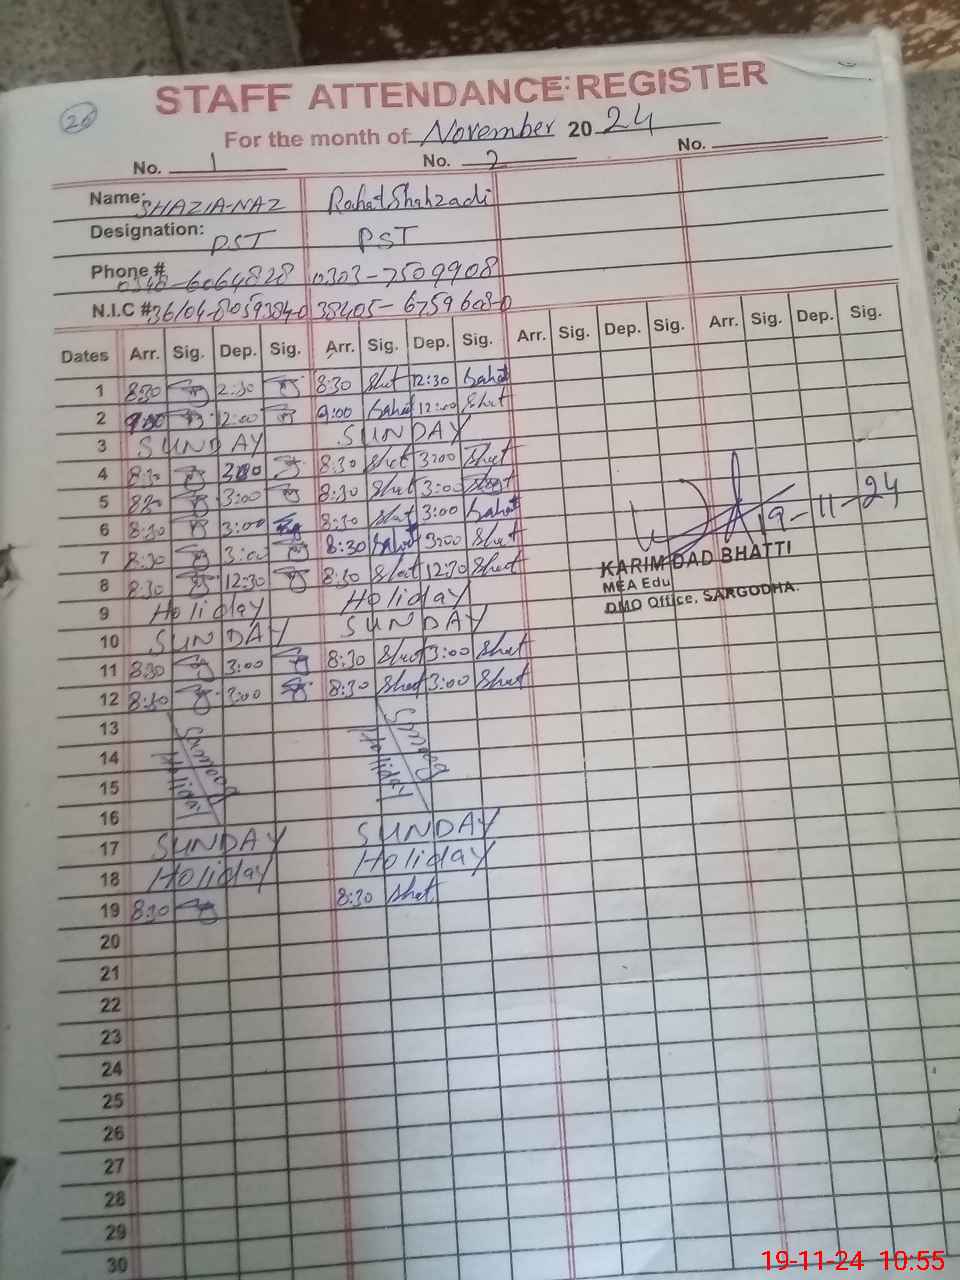 26
STAFF ATTENDANCE REGISTER
For the month of November 2024
No. 1 No. 2 No.
Name: SHAZIA-NAZ Rahat Shahzadi
Designation: PST PST
Phone # 0348-6064828 0303-7509908
N.I.C # 36104-8059384-0 38405-6759608-0
Dates Arr. Sig. Dep. Sig. Arr. Sig. Dep. Sig. Arr. Sig. Dep. Sig. Arr. Sig. Dep. Sig.
1 8:30 2:30 8:30 12:30 Rahat
2 9:00 12:00 9:00 Rahat 12:00
3 SUNDAY SUNDAY
4 8:30 8:30 3:00
5 8:30 3:00 8:30 3:00
6 8:30 3:00 8:30 3:00 Rahat
7 8:30 3:00 8:30 Rahat 3:00
8 8:30 12:30 8:30 12:30
9 Holiday Holiday
10 SUNDAY SUNDAY
11 8:30 3:00 8:30 3:00
12 8:30 3:00 8:30 3:00
13
14 Smoog Holiday Smoog Holiday
15
16
17 SUNDAY SUNDAY
18 Holiday Holiday
19 8:30 8:30
20
21
22
23
24
25
26
27
28
29
30
19-11-24
KARIM DAD BHATTI
MEA Edu
DMO Office, SARGODHA.
19-11-24 10:55